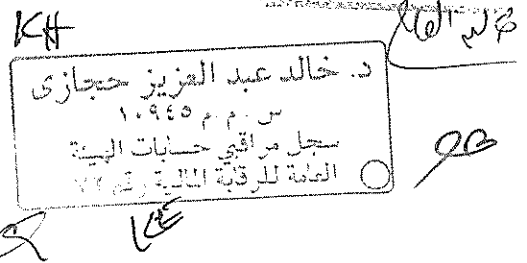 KH
د. خالد عبد العزيز حجازى
س . م . م ١٠٩٤٥
سجل مراقبي حسابات الهيئة
العامة للرقابة المالية رقم ٧٢